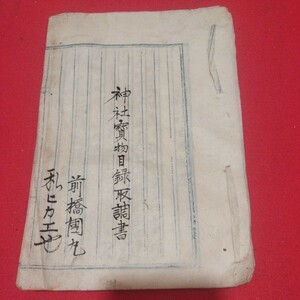 神社寳物目録取調書
前橋國九
私ヒカエ也